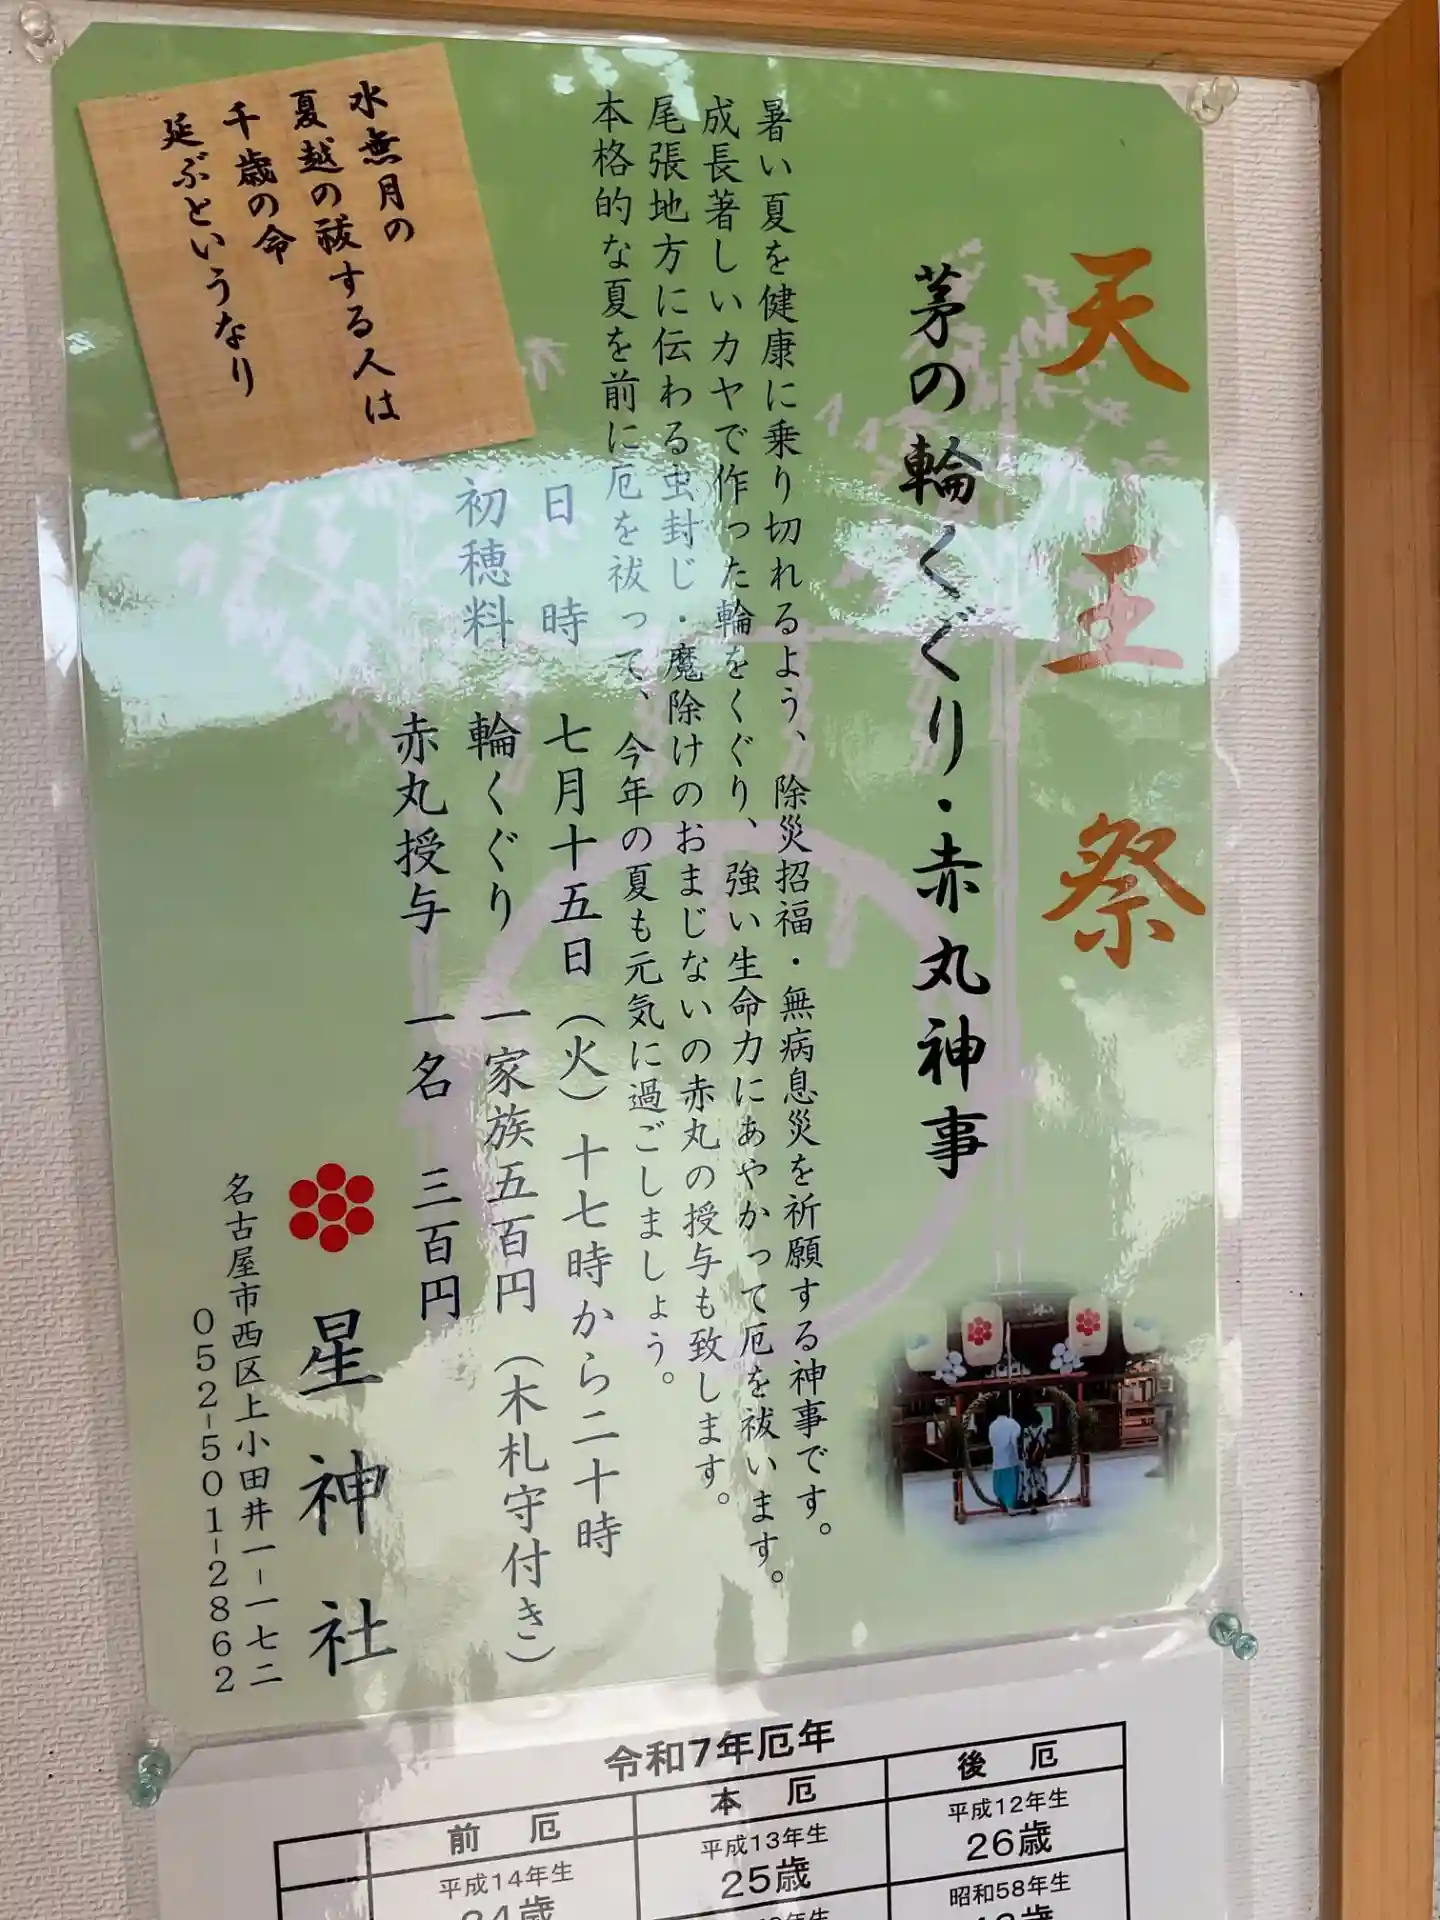 天王祭
茅の輪くぐり・赤丸神事
暑い夏を健康に乗り切れるよう、除災招福・無病息災を祈願する神事です。
成長著しいカヤで作った輪をくぐり、強い生命力にあやかって厄を祓います。
尾張地方に伝わる虫封じ・魔除けのおまじないの赤丸の授与も致します。
本格的な夏を前に厄を祓って、今年の夏も元気に過ごしましょう。
日時 七月十五日(火)十七時から二十時
初穂料 輪くぐり 一家族五百円(木札守付き)
赤丸授与 一名 三百円
水無月の
夏越の祓する人は
千歳の命
延ぶというなり
星神社
名古屋市西区上小田井一-一七二
052-501-2862
令和7年厄年
前厄 本厄 後厄
平成14年生 平成13年生 平成12年生
24歳 25歳 26歳
昭和58年生